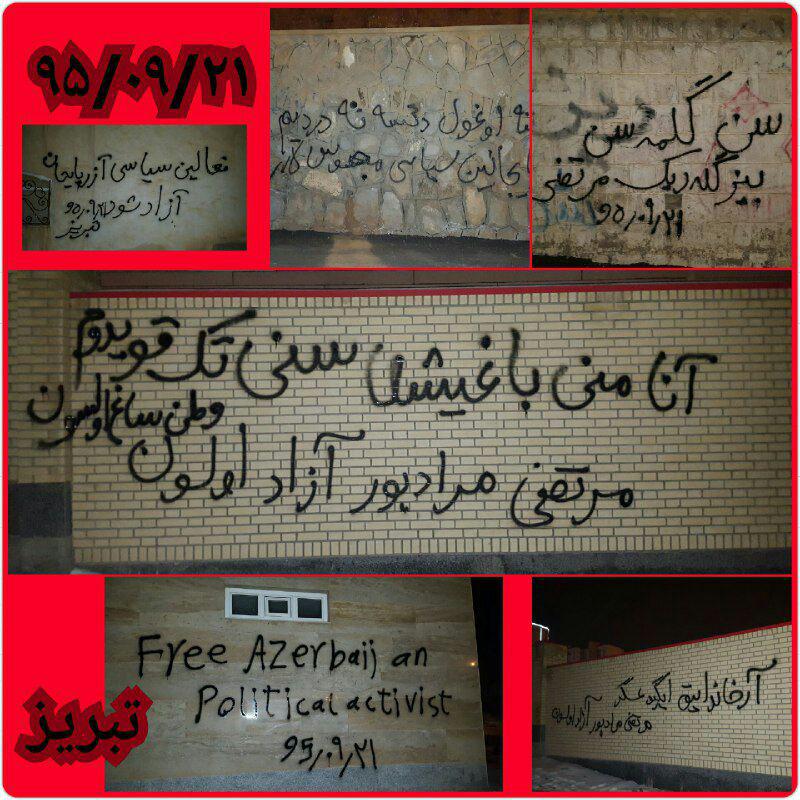 ۹۵/۰۹/۲۱
فعالین سیاسی آزربایجان
آزاد شود ۹۵/۰۹/۲۱
تبریز
اوغول دئسه نه دردیم
سیاسی محبوس لار
سن گلمه سن
بیز گله ریک مرتضی
۹۵/۰۹/۲۱
آنا منی باغیشلا سنی تک قویدوم
وطن ساغ اولسون
مرتضی مرادپور آزاد اولسون
Free AZerbaijan
Political activist
95/09/21
تبریز
آرخاندایق ایگید عسگر
مرتضی مرادپور آزاد اولسون